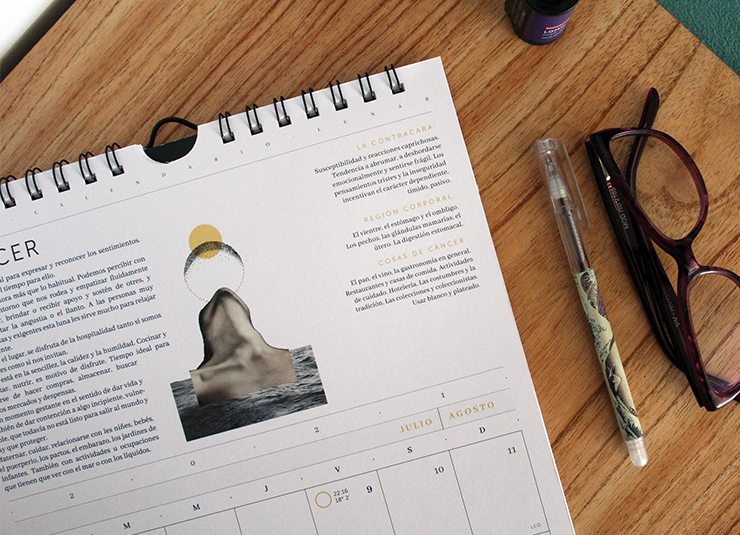 CALENDARIO LUNAR
CER
al para expresar y reconocer los sentimientos.
tiempo para ello.
ora más que lo habitual. Podemos percibir con
ntorno que nos rodea y empatizar fluidamente
brindar o recibir apoyo y sostén de otres, y
tar la angustia o el llanto. A las personas muy
as y exigentes esta luna les sirve mucho para relajar
nte.
el lugar, se disfruta de la hospitalidad tanto si somos
es como si nos invitan.
está en la sencillez, la calidez y la humildad. Cocinar y
tar, nutrir, es motivo de disfrute. Tiempo ideal para
rse de hacer compras, almacenar, buscar
os mercados y despensas.
n momento gestante en el sentido de dar vida y
mbién de dar contención a algo incipiente, vulne-
ble, que todavía no está listo para salir al mundo y
ay que proteger.
Maternar, cuidar, relacionarse con les niñes, bebés,
el puerperio, los partos, el embarazo, los jardines de
infantes. También con actividades u ocupaciones
que tienen que ver con el mar o con los líquidos.
LA CONTRACARA
Susceptibilidad y reacciones caprichosas.
Tendencia a abrumar, a desbordarse
emocionalmente y sentirse frágil. Los
pensamientos tristes y la inseguridad
incentivan el carácter dependiente,
tímido, pasivo.
REGIÓN CORPORAL
El vientre, el estómago y el ombligo.
Los pechos, las glándulas mamarias, el
útero. La digestión estomacal.
COSAS DE CÁNCER
El pan, el vino, la gastronomía en general.
Restaurantes y casas de comida. Actividades
de cuidado. Hotelería. Las costumbres y la
tradición. Las colecciones y coleccionistas.
Usar blanco y plateado.
2 . 0 . 2 . 1
JULIO AGOSTO
M . M . J . V . S . D .
22:16
18° 2'
9
10
11
LEO